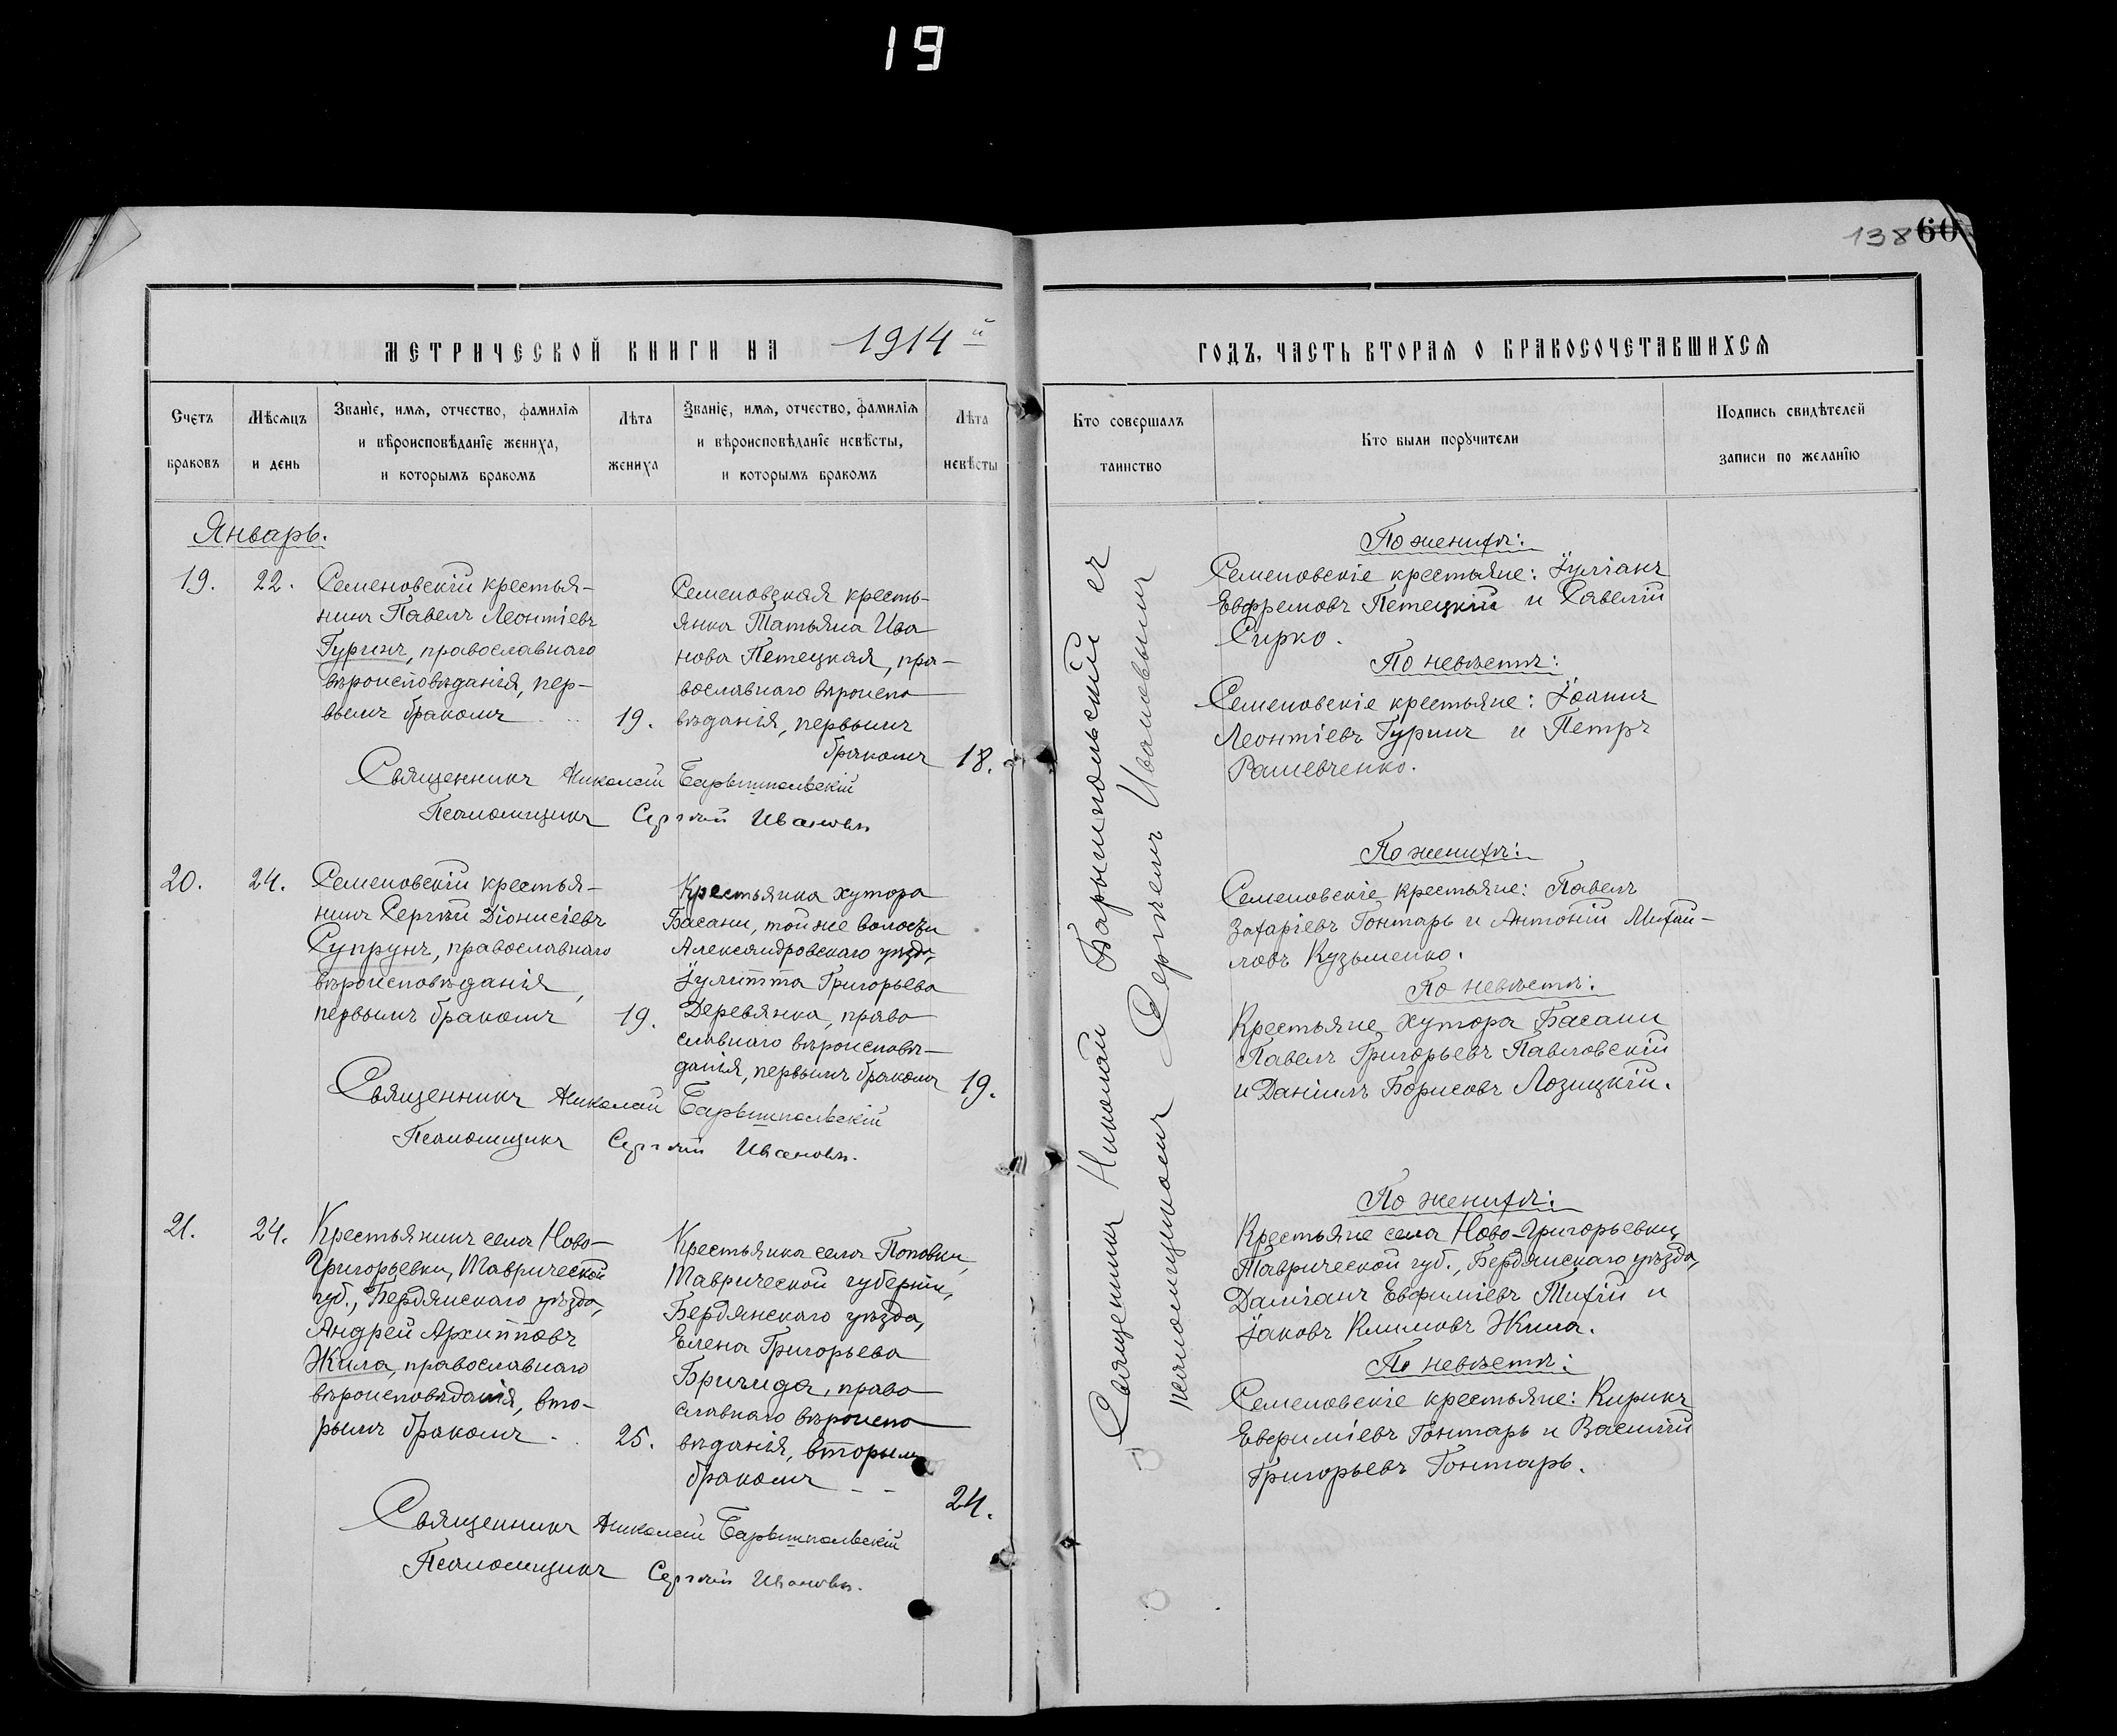 19
138 60
МЕТРИЧЕСКОЙ КНИГИ НА 1914й
ГОДЪ, ЧАСТЬ ВТОРАЯ О БРАКОСОЧЕТАВШИХСЯ
Счетъ браковъ
Мѣсяцъ и день
Званіе, имя, отчество, фамилія
и вѣроисповѣданіе жениха,
и которымъ бракомъ
Лѣта жениха
Званіе, имя, отчество, фамилія
и вѣроисповѣданіе невѣсты,
и которымъ бракомъ
Лѣта невѣсты
Кто совершалъ
таинство
Кто были поручители
Подпись свидѣтелей
записи по желанію
Январь.
19. 22.
Семеновскій крестья-
нинъ Павелъ Леонтіевъ
Гуринъ, православнаго
вѣроисповѣданія, пер-
вымъ бракомъ
19.
Семеновская кресть-
янка Татьяна Ива
нова Петецкая, пра-
вославнаго вѣроиспо
вѣданія, первымъ
бракомъ
18.
Священникъ Николай Барышпольскій
Псаломщикъ Сергѣй Ивановъ
20. 24.
Семеновскій крестья-
нинъ Сергѣй Діонисіевъ
Супрунъ, православнаго
вѣроисповѣданія,
первымъ бракомъ
19.
Крестьянка хутора
Басани, той же волости
Александровскаго уѣзда,
Іулитта Григорьева
Деревянка, право
славнаго вѣроисповѣ-
данія, первымъ бракомъ
19.
Священникъ Николай Барышпольскій
Псаломщикъ Сергѣй Ивановъ.
21. 24.
Крестьянинъ села Ново-
Григорьевки, Таврической
губ., Бердянскаго уѣзда,
Андрей Архипповъ
Жила, православнаго
вѣроисповѣданія, вто-
рымъ бракомъ.
25.
Крестьянка села Поповки,
Таврической губерніи,
Бердянскаго уѣзда,
Елена Григорьева
право
славнаго вѣроиспо
вѣданія, вторым
бракомъ
24.
Священникъ Николай Барышпольскій
Псаломщикъ Сергѣй Ивановъ.
Священникъ Николай Барышпольскій съ
псаломщикомъ Сергѣемъ Ивановымъ
По женихѣ:
Семеновскіе крестьяне: Іуліанъ
Евфремовъ Петецкій и Савелій
Сирко.
По невѣстѣ:
Семеновскіе крестьяне: Іоаннъ
Леонтіевъ Гуринъ и Петръ
Рашевченко.
По женихѣ:
Семеновскіе крестьяне: Павелъ
Захаріевъ Гонтарь и Антоній Михаи-
ловъ Кузьменко.
По невѣстѣ:
Крестьяне хутора Басани
Павелъ Григорьевъ Павловскій
и Даніилъ Борисовъ Лозицкій.
По женихѣ:
Крестьяне села Ново-Григорьевки,
Таврической губ., Бердянскаго уѣзда,
Даміанъ Евфиміевъ Тихій и
Іаковъ Климовъ Жила.
По невѣстѣ:
Семеновскіе крестьяне: Кирикъ
Евфиміевъ Гонтарь и Василій
Григорьевъ Гонтарь.